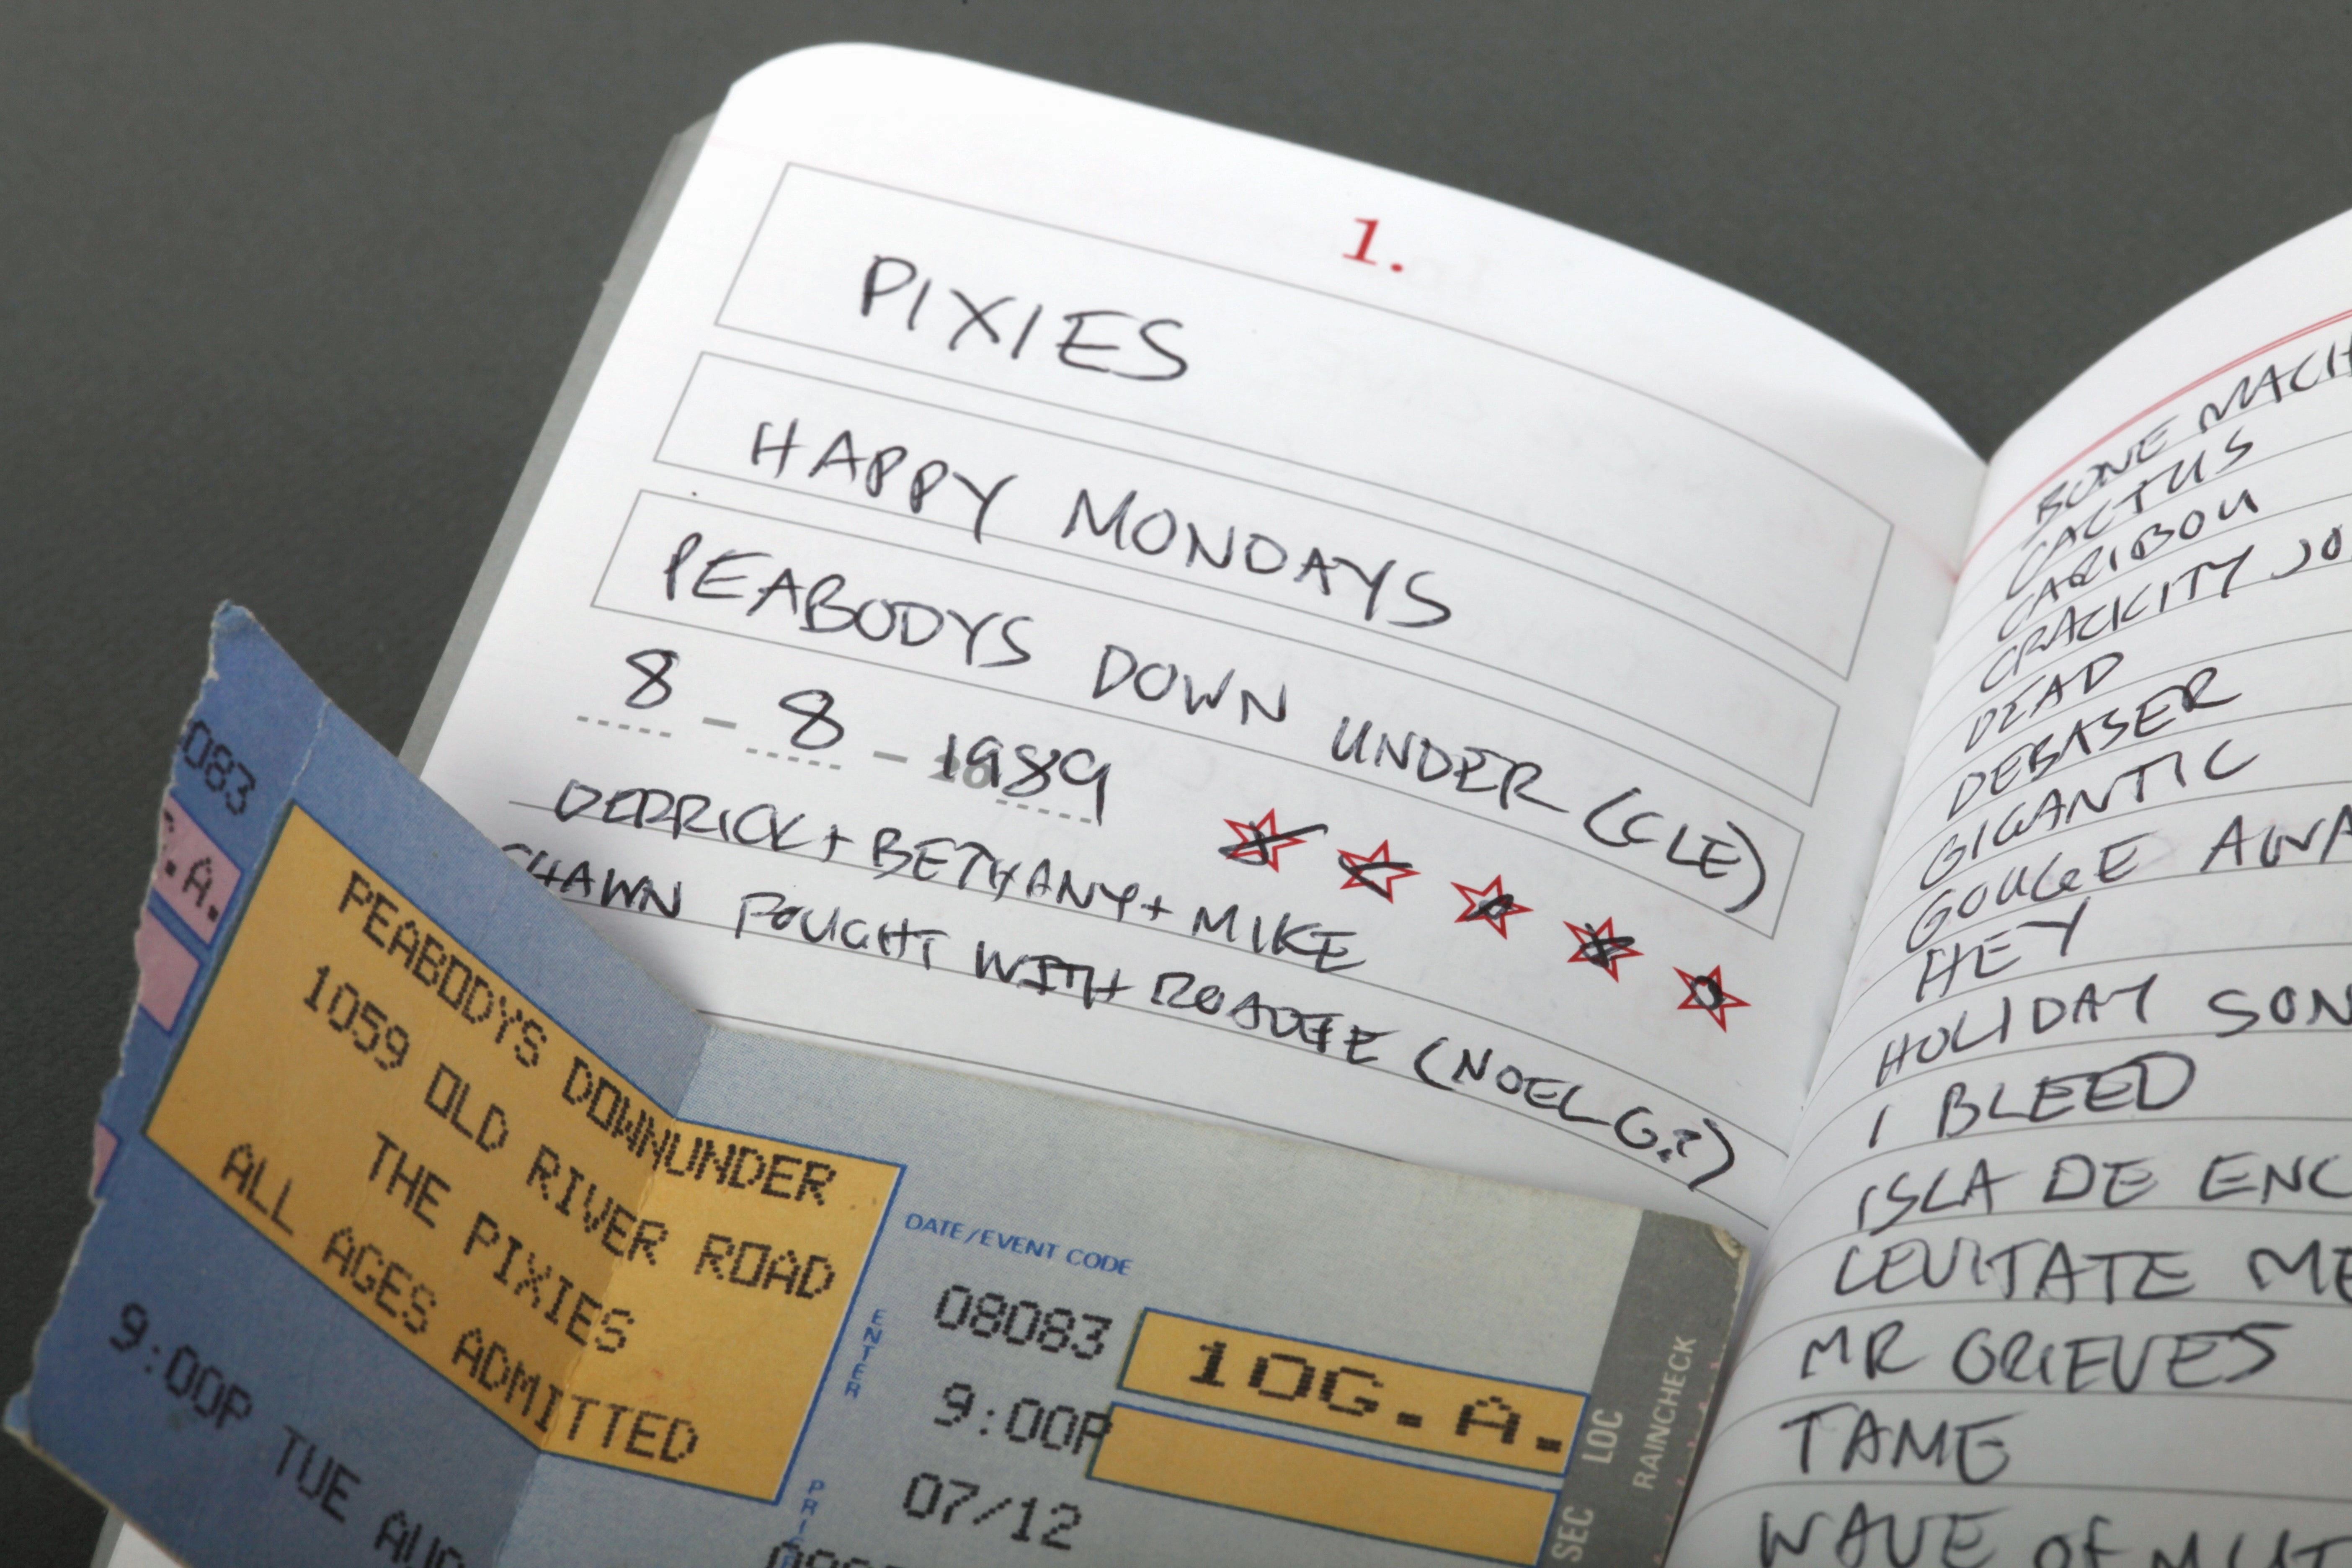 1.
PIXIES
HAPPY MONDAYS
PEABODYS DOWN UNDER (CLE)
8 - 8 - 1989
DERRICK + BETHANY + MIKE
SHAWN FOUGHT WITH ROADIE (NOEL G?)
BONE MACH
CACTUS
CARIBOU
CRACKITY JO
DEAD
DEBASER
GIGANTIC
GOUGE AWA
HEY
HOLIDAY SON
I BLEED
ISLA DE ENC
LEVITATE ME
MR GRIEVES
TAME
WAVE OF MUT
083
.A.
PEABODYS DOWNUNDER
1059 OLD RIVER ROAD
THE PIXIES
ALL AGES ADMITTED
9:00P TUE AUG
DATE/EVENT CODE
ENTER
08083
10G.A.
9:00P
07/12
SEC LOC
RAINCHECK